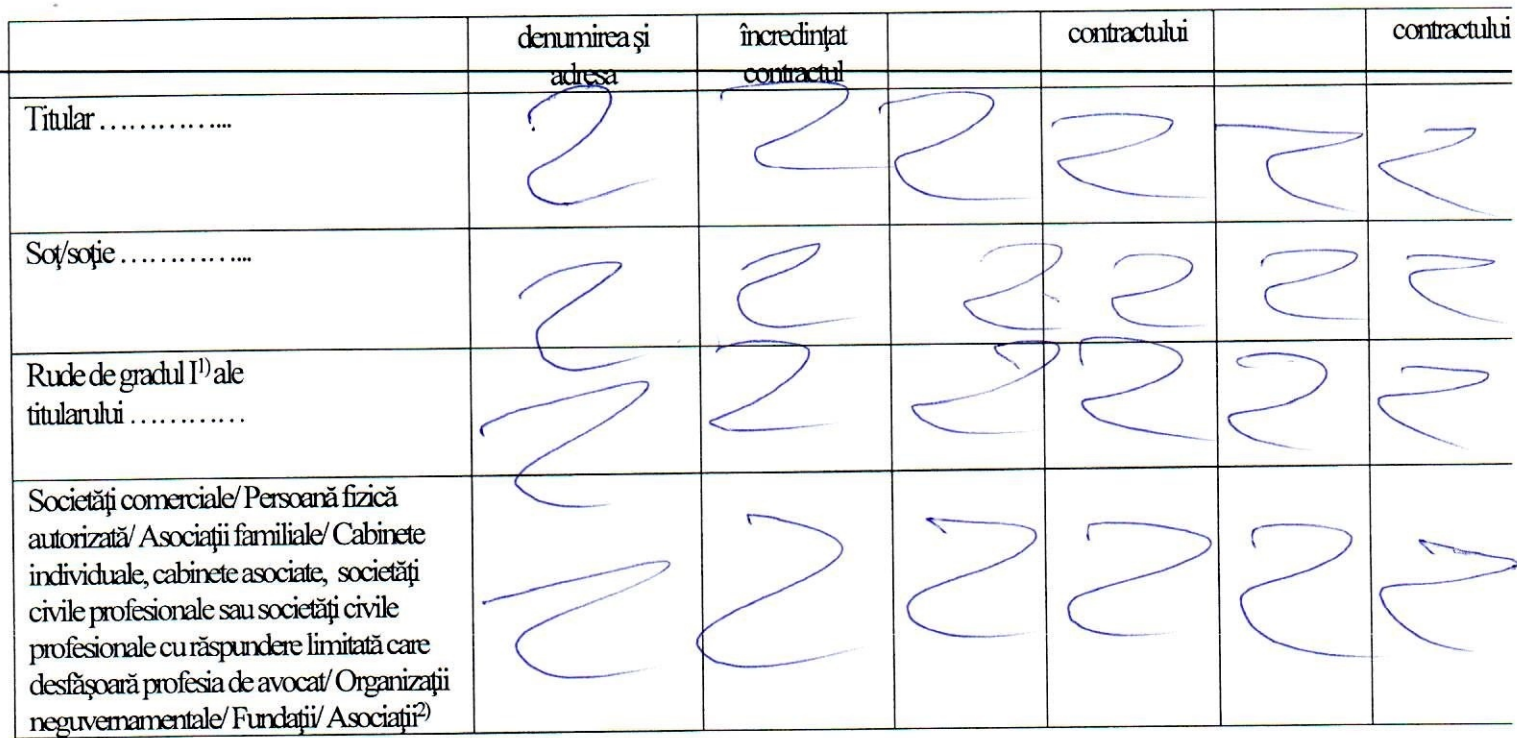 denumirea şi încredinţat contractului contractului
adresa contractul
Titular …………...
Soţ/soţie …………...
Rude de gradul I¹⁾ ale
titularului …………
Societăţi comerciale/ Persoană fizică
autorizată/ Asociaţii familiale/ Cabinete
individuale, cabinete asociate, societăţi
civile profesionale sau societăţi civile
profesionale cu răspundere limitată care
desfăşoară profesia de avocat/ Organizaţii
neguvernamentale/ Fundaţii/ Asociaţii²⁾